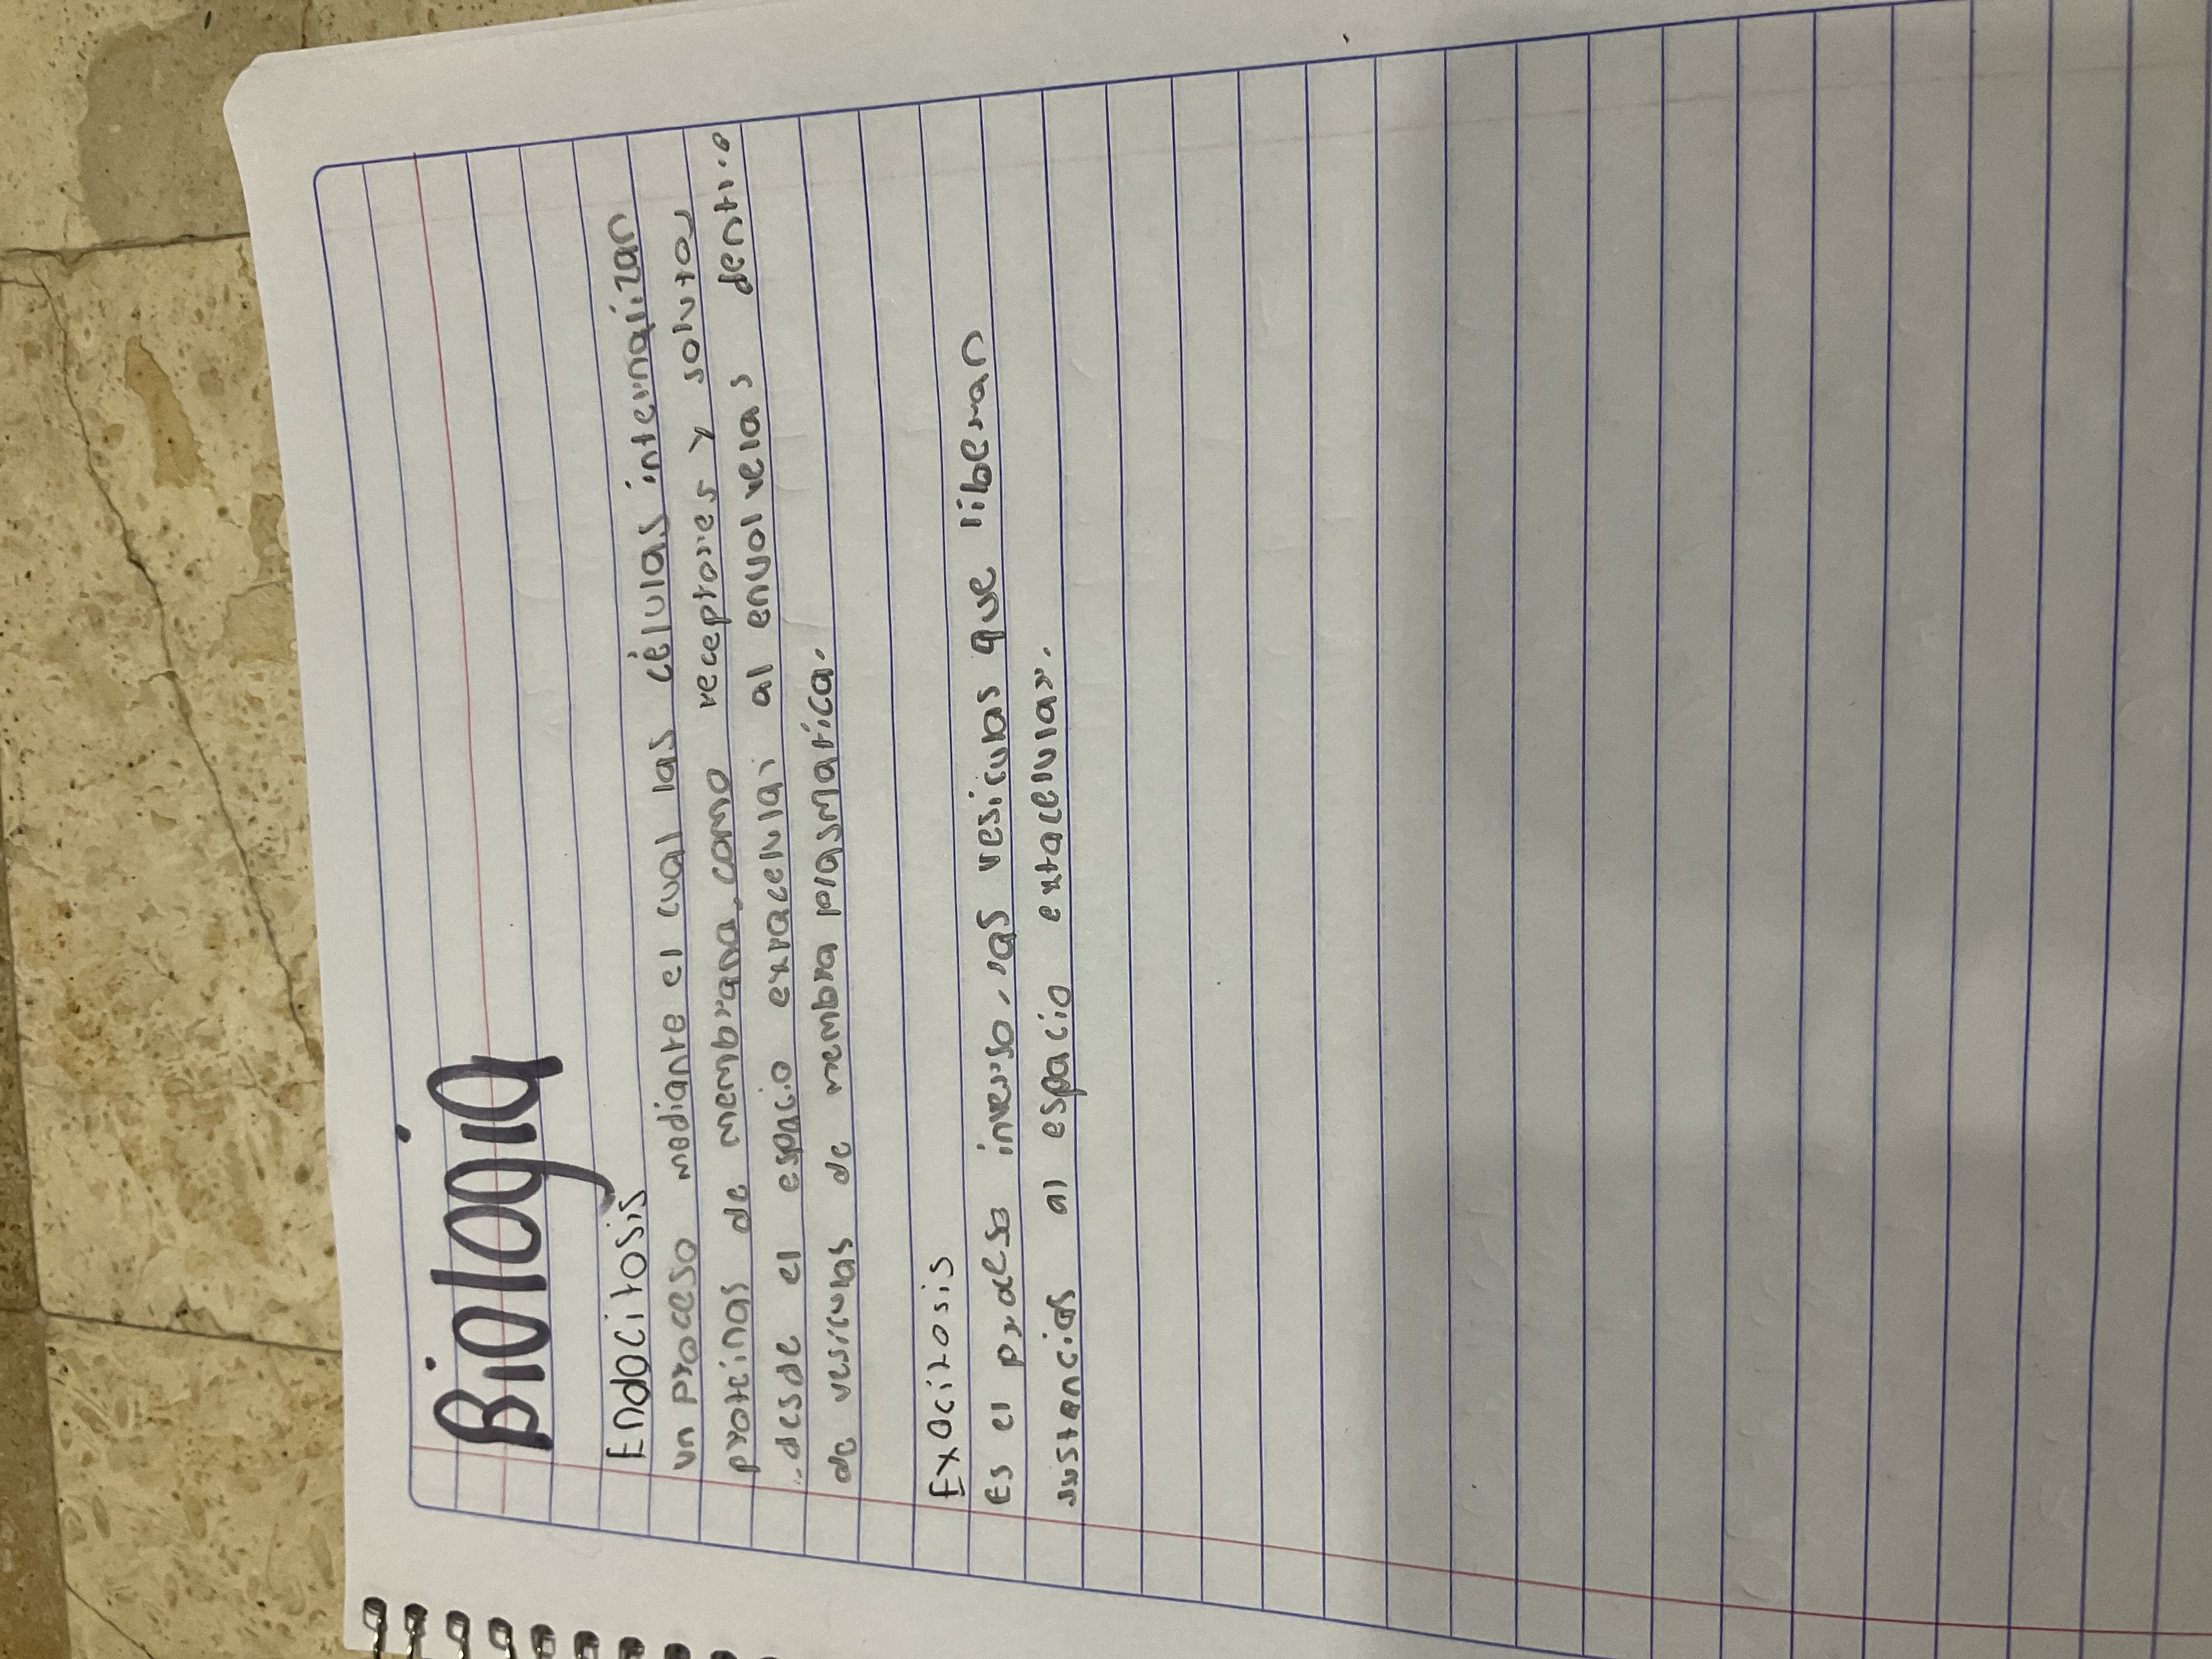 Biologia
Endocitosis
un proceso mediante el cual las células internalizan
proteinas de membrana, como receptores y solutos
desde el espacio extracelular al envolvelas dentro
de vesículas de membra plasmática.
Exocitosis
Es el proceso inverso, las vesiculas que liberan
sustancias al espacio extacelular.